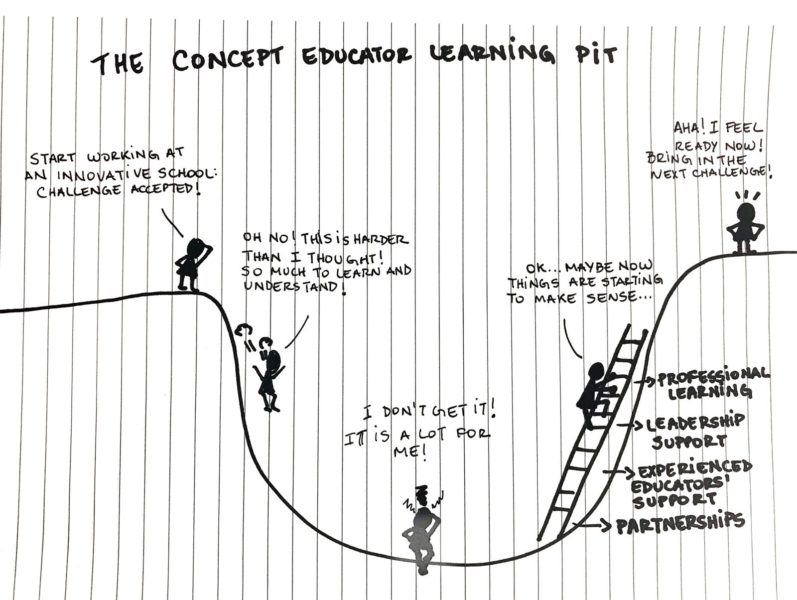 THE CONCEPT EDUCATOR LEARNING PIT
START WORKING AT
AN INNOVATIVE SCHOOL:
CHALLENGE ACCEPTED!
OH NO! THIS IS HARDER
THAN I THOUGHT!
SO MUCH TO LEARN AND
UNDERSTAND!
I DON'T GET IT!
IT IS A LOT FOR
ME!
OK... MAYBE NOW
THINGS ARE STARTING
TO MAKE SENSE...
AHA! I FEEL
READY NOW!
BRING IN THE
NEXT CHALLENGE!
PROFESSIONAL
LEARNING
LEADERSHIP
SUPPORT
EXPERIENCED
EDUCATORS'
SUPPORT
PARTNERSHIPS